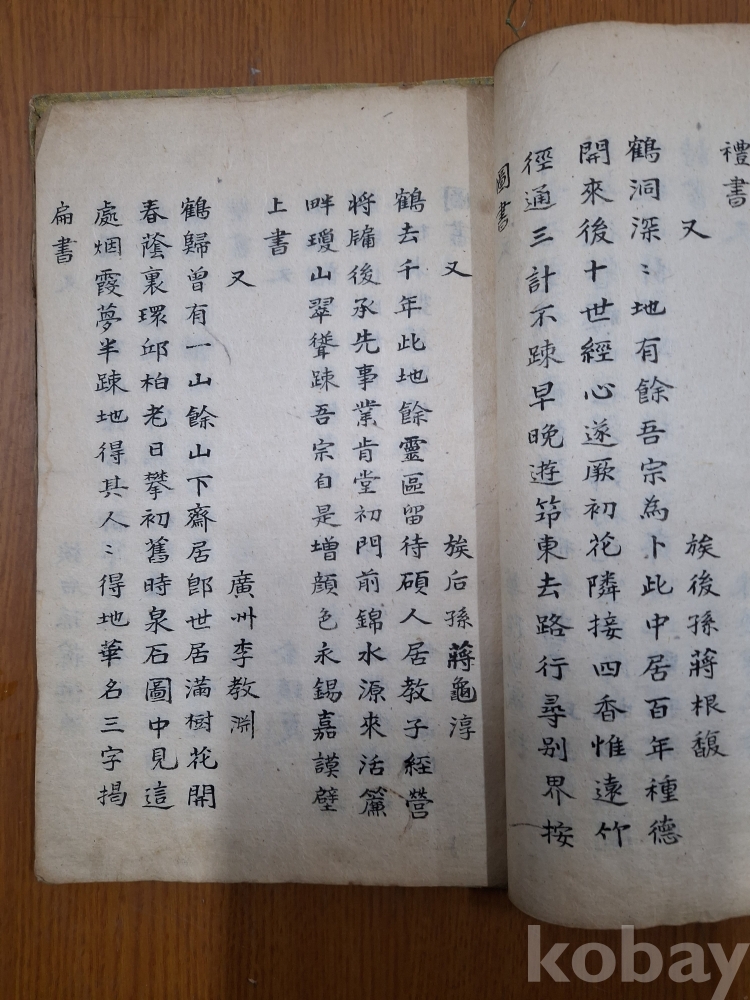 禮書
又
族後孫蔣根馥
鶴洞深〻地有餘吾宗為卜此中居百年種德
開來後十世經心遂厥初花隣接四香惟遠竹
徑通三計不踈早晚逰笻東去路行尋別界按
圖書
又
族后孫蔣龜淳
鶴去千年此地餘靈區留待碩人居教子經營
將牗後承先事業肯堂初門前錦水源來活簾
畔瓊山翠聳踈吾宗自是增顔色永錫嘉謨壁
上書
又
廣州李教淵
鶴歸曾有一山餘山下齋居卽世居滿樹花開
春蔭裏環邱柏老日攀初舊時泉石圖中見這
處烟霞夢半踈地得其人〻得地華名三字揭
扁書
kobay